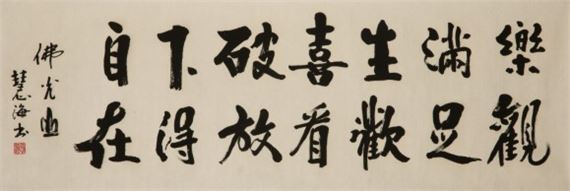 樂觀
滿足
生歡
喜看
破放
下得
自在
佛光山
慧海书